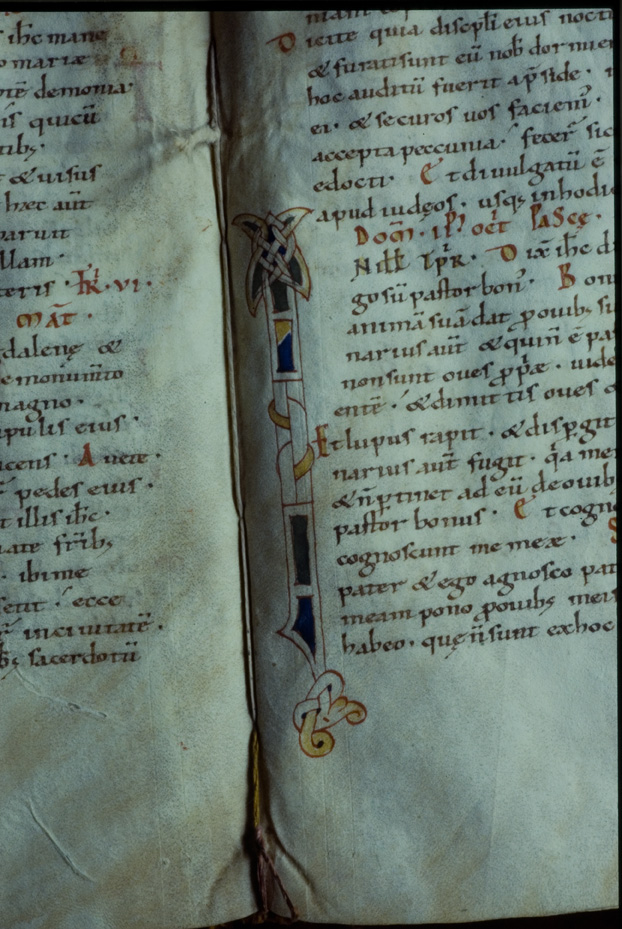 ih̅c mane
mariæ
demonia
is quicū
tib;
& uisus
hæc aūt
paruit
llam.
teris. Fr̄. vi.
mat̄.
gdalenę &
e monum̄to
magno.
ipulis eius.
icens. Auete.
pedes eius.
t illis ih̅c.
iate fr̄ib;
. ibi me
. ecce
in ciuitatē.
sacerdotū
Dicite quia discipl̄i eius noct
& furati sunt eū nob̄ dormien
hoc auditū fuerit ap̄side.
ei. & securos uos faciem̄.
accepta peccunia. fecer̄ sic
edocti. Et diuulgatū ē
apud iudęos. usq; in hodi
Dom̄. oct̄ Pascę.
Dix̄ ih̅c d
go sū pastor bon̄. Bon
animā suā dat p̱ ouib; su
narius aūt & qui n̄ ē pa
non sunt oues p̱p̄æ. uide
entē. & dimittis oues
Et lupus rapit. & disp̱git
narius aūt fugit. q̄a me
& n̄ p̱tinet ad eū de ouib
pastor bonus. Et cogn
cognoscunt me meæ.
pater & ego agnosco pat
meam pono p̱ ouib; meis
habeo. quę n̄ sunt ex hoc